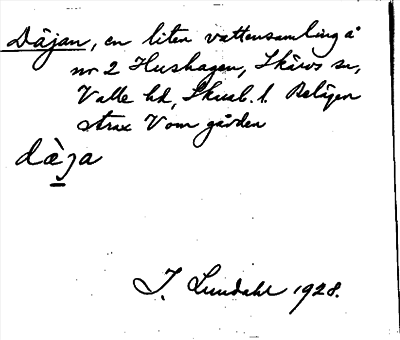 Däjan, en liten vattensamling å
nr 2 Hushagen, Skärvs sn,
Valle hd, Skarab. l. Belägen
strax V om gården
dæ̀ja
I. Lundahl 1928.